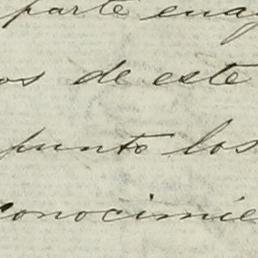 parte enag
os de este
punto los
conocimie